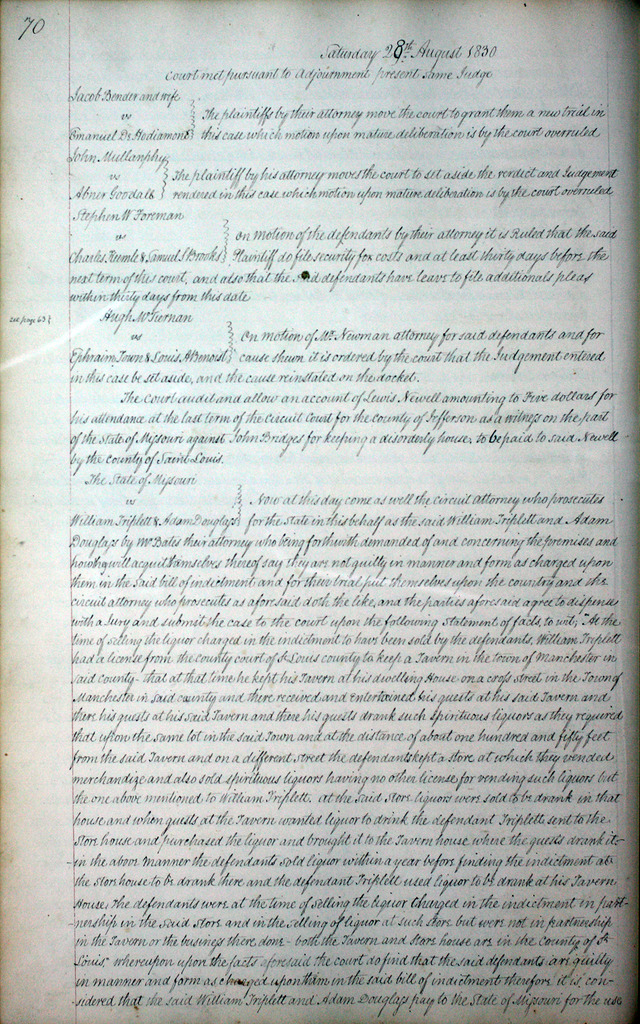 70
Saturday 28th August 1830
Court met pursuant to Adjournment present Same Judge
Jacob Bender and wife
vs The plaintiffs by their attorney move the court to grant them a new trial in
Emanuel De Hodiamont this case which motion upon mature deliberation is by the court overruled
John Mullanphy
vs The plaintiff by his attorney moves the court to set aside the verdict and Judgement
Abner Goodale rendered in this case which motion upon mature deliberation is by the court overruled
Stephen W Foreman
vs On motion of the defendants by their attorney it is Ruled that the said
Charles Keemle & Samuel S Brooks Plaintiff do file security for costs and at least thirty days before the
next term of this court, and also that the said defendants have leave to file additional pleas
within thirty days from this date
see page 63
Hugh McTiernan
vs On motion of Mr Newman attorney for said defendants and for
Ephraim Town & Louis A Benoist cause shewn it is ordered by the court that the Judgement entered
in this case be set aside, and the cause reinstated on the docket.
The Court audit and allow an account of Lewis Newell amounting to Five dollars for
his attendance at the last term of the Circuit Court for the county of Jefferson as a witness on the part
of the State of Missouri against John Bridges for keeping a disorderly house, to be paid to said Newell
by the county of Saint Louis.
The State of Missouri
vs Now at this day come as well the circuit attorney who prosecutes
William Triplett & Adam Douglass for the State in this behalf as the said William Triplett and Adam
Douglass by Mr Bates their attorney who being forthwith demanded of and concerning the premises and
how they will acquit themselves thereof say they are not guilty in manner and form as charged upon
them in the said bill of indictment and for their trial put themselves upon the country and the
circuit attorney who prosecutes as aforesaid doth the like, and the parties aforesaid agree to dispense
with a Jury and submit the case to the court upon the following statement of facts, to wit; At the
time of selling the liquor charged in the indictment to have been sold by the defendants, William Triplett
had a license from the county court of St Louis county to keep a Tavern in the town of Manchester in
said county - that at that time he kept his Tavern at his dwelling House on a cross street in the Town of
Manchester in said county and there received and entertained his guests at his said Tavern and
there his guests at his said Tavern and there his guests drank such spirituous liquors as they required
that upon the same lot in the said Town and at the distance of about one hundred and fifty feet
from the said Tavern and on a different street the defendants kept a store at which they vended
merchandize and also sold spirituous liquors having no other license for vending such liquors but
the one above mentioned to William Triplett. at the said Store liquors were sold to be drank in that
house and when guests at the Tavern wanted liquor to drink the defendant Triplett sent to the
Store house and purchased the liquor and brought it to the Tavern house where the guests drank it -
in the above manner the defendants sold liquor within a year before finding the indictment at
the Store house to be drank there and the defendant Triplett used liquor to be drank at his Tavern
House, the defendants were at the time of selling the liquor charged in the indictment in part-
nership in the said Store and in the selling of liquor at such store but were not in partnership
in the Tavern or the business there done - both the Tavern and Store house are in the County of St
Louis, whereupon upon the facts aforesaid the court do find that the said defendants are guilty
in manner and form as charged upon them in the said bill of indictment therefore it is con-
sidered that the said William Triplett and Adam Douglass pay to the State of Missouri for the use